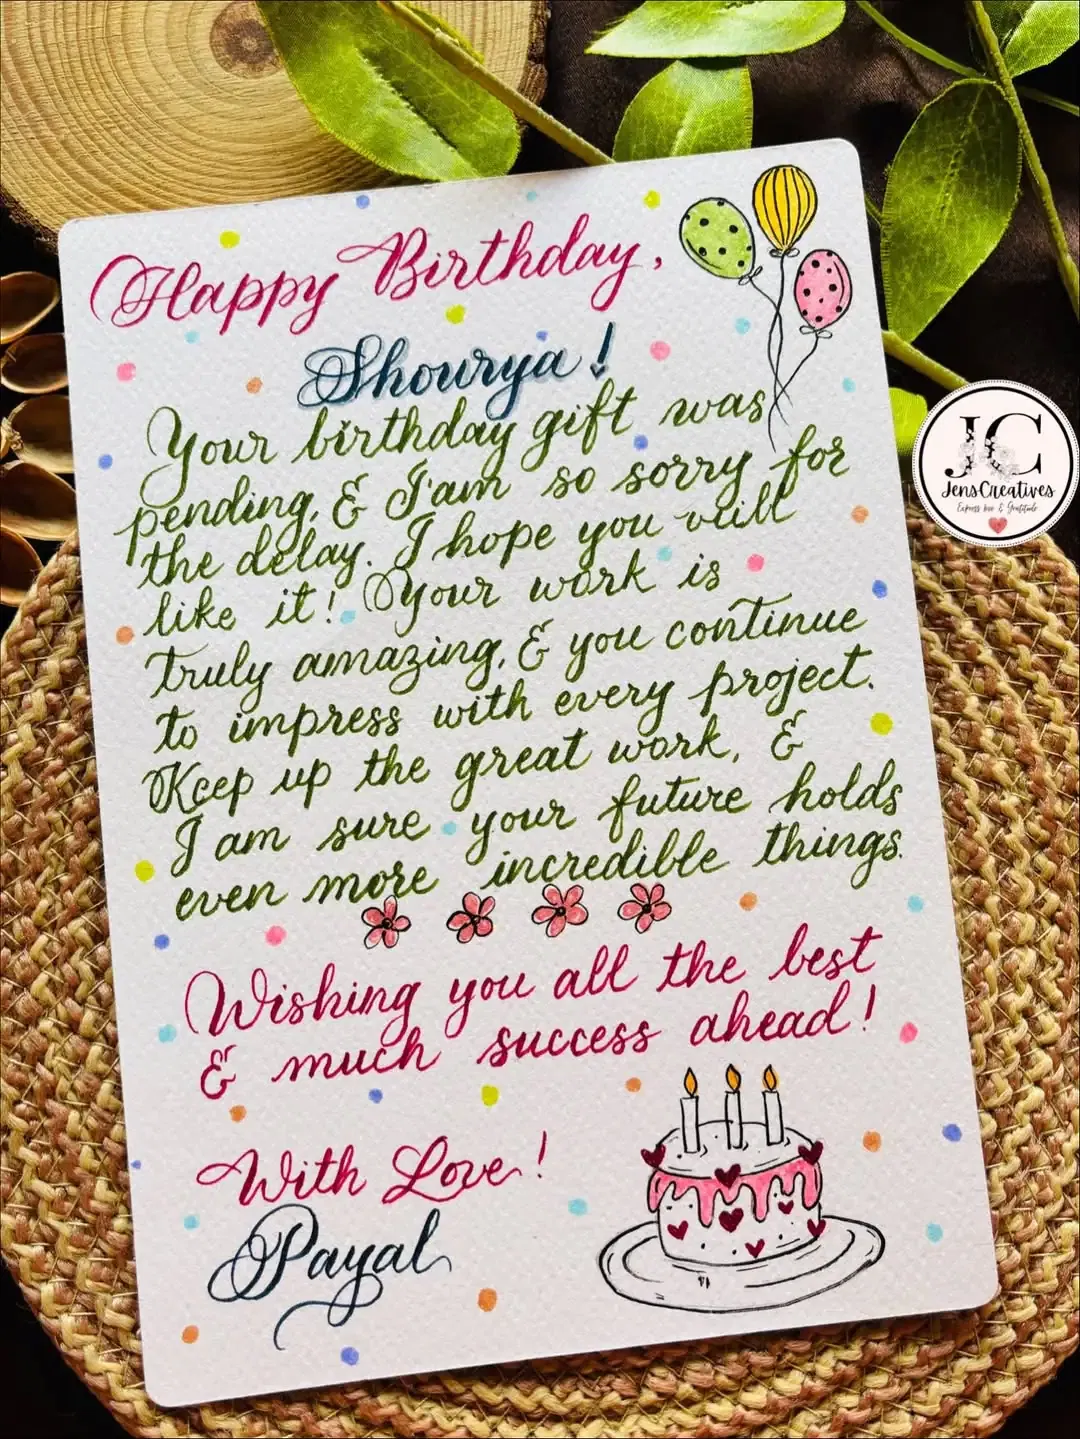 Happy Birthday,
Shourya!
Your birthday gift was
pending, & I'am so sorry for
the delay. I hope you will
like it! Your work is
truly amazing, & you continue
to impress with every project.
Keep up the great work, &
I am sure your future holds
even more incredible things.
Wishing you all the best
& much success ahead!
With Love!
Payal
JC
JensCreatives
Express love & Gratitude